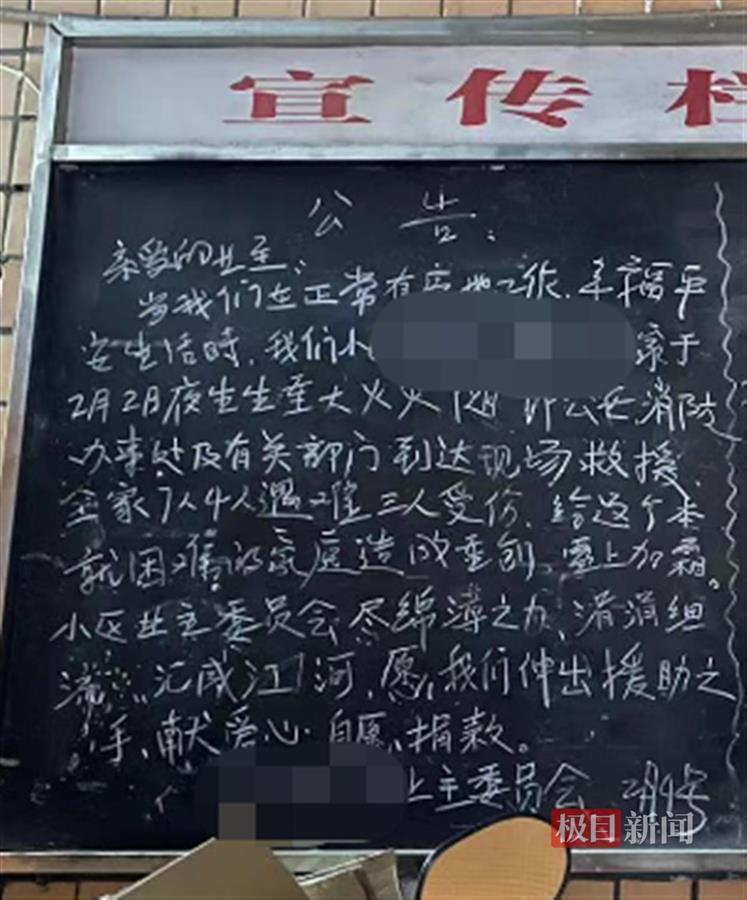 宣传栏
公告:
亲爱的业主:
当我们在正常有 地工作、幸福平
安生活时,我们小 家于
2月2日夜里发生重大火灾 公安消防
办事处及有关部门到达现场救援,
全家7人4人遇难三人受伤,给这个本
就困难的家庭造成重创,雪上加霜。
小区业主委员会尽绵薄之力、涓涓细
流,汇成江河,愿我们伸出援助之
手、献爱心、自愿捐款。
业主委员会 2月4号
极目新闻